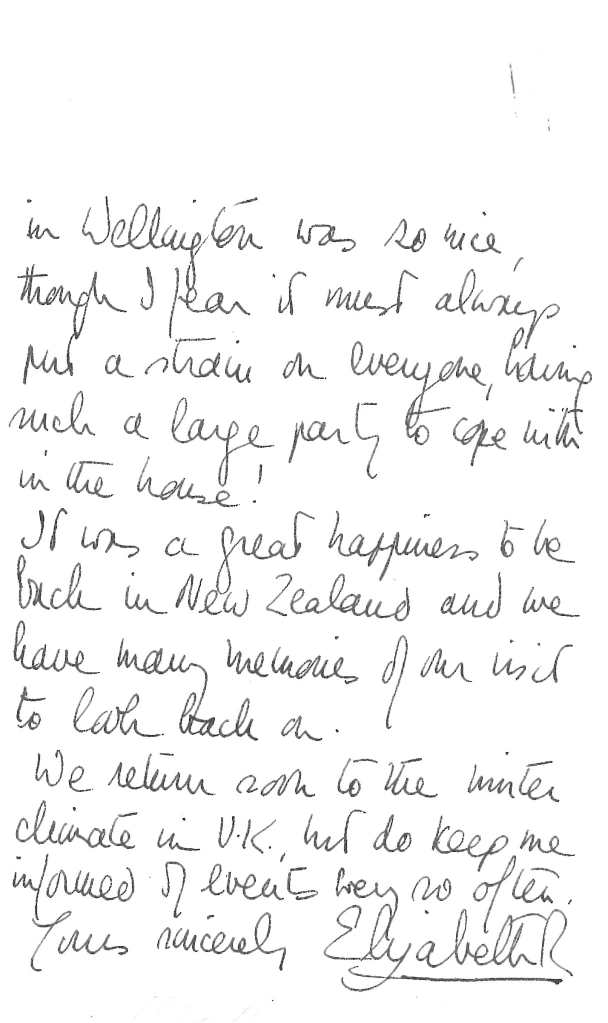 in Wellington was so nice,
though I fear it must always
put a strain on everyone, having
such a large party to cope with
in the house!
It was a great happiness to be
back in New Zealand and we
have many memories of our visit
to look back on.
We return soon to the winter
climate in U.K., but do keep me
informed of events every so often.
Yours sincerely Elizabeth R